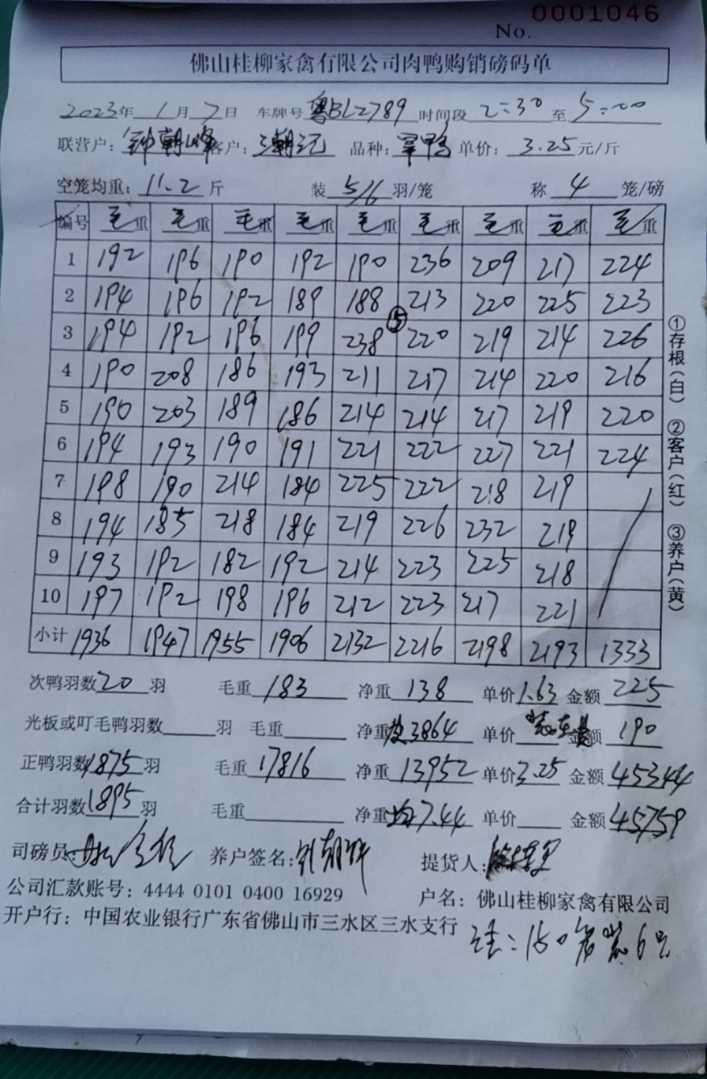 No. 0001046
佛山桂柳家禽有限公司肉鸭购销磅码单
2023年 1月 7日 车牌号 粤BL2789 时间段 2:30 至 5:00
联营户: 钟朝峰 客户: 品种: 单价: 3.25元/斤
空笼均重: 11.2斤 装 5/6 羽/笼 称 4 笼/磅
编号 毛重 毛重 毛重 毛重 毛重 毛重 毛重 毛重 毛重
1 192 196 190 192 190 236 209 217 224
2 194 196 192 189 188 213 220 225 223
3 194 192 196 199 238 ⑤ 220 219 214 226
4 190 208 186 193 211 217 214 220 216
5 190 203 189 186 214 214 217 219 220
6 194 193 190 191 221 222 227 221 224
7 198 190 214 184 225 222 218 219
8 194 185 218 184 219 226 232 219
9 193 192 182 192 214 223 225 218
10 197 192 198 196 212 223 217 221
小计 1936 1947 1955 1906 2132 2216 2198 2193 1333
次鸭羽数 20 羽 毛重 183 净重 138 单价 1.63 金额 225
光板或叮毛鸭羽数 羽 毛重 净重 3864 单价 金额 190
正鸭羽数 1875 羽 毛重 17816 净重 13952 单价 3.25 金额 45344
合计羽数 1895 羽 毛重 净重 均7.44 单价 金额 45759
司磅员: 养户签名: 提货人:
公司汇款账号: 4444 0101 0400 16929 户名: 佛山桂柳家禽有限公司
开户行: 中国农业银行广东省佛山市三水区三水支行
注: 150 装6只
①存根(白) ②客户(红) ③养户(黄)